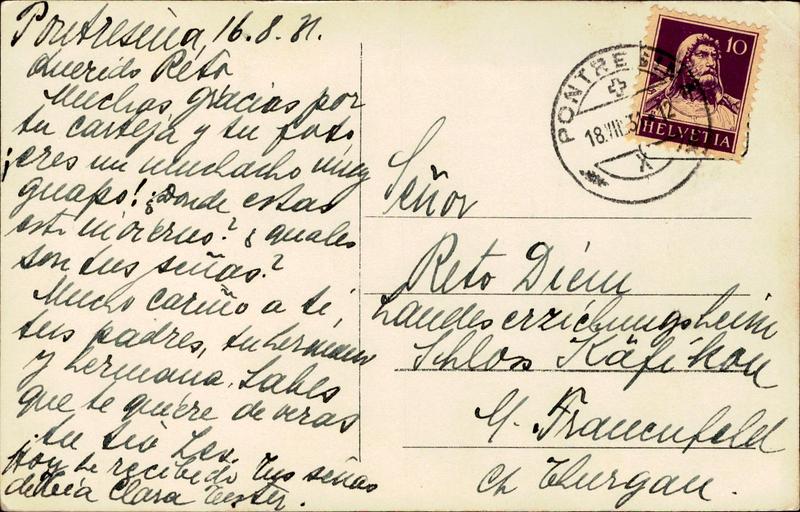 Pontresina, 16.8.31.
Querido Reto
Muchas gracias por
tu carteja y tu foto
¡eres un muchacho muy
guapo! ¿Donde estas
est invierno? ¿quales
son tus señas?
Mucho cariño a tí,
tus padres, tu hermano
y hermana. Sabes
que te quiere de veras
tu tio
Hoy he recibido tus señas
de tia Clara
PONTRESINA
18.VIII.31
X
10
HELVETIA
Señor
Reto Diem
Landeserziehungsheim
Schloss Käfikon
b/ Frauenfeld
Ct Thurgau.